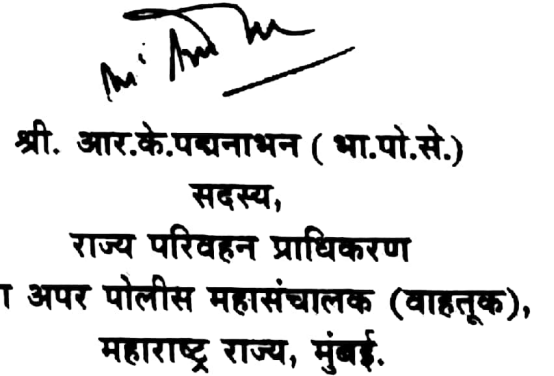 श्री. आर.के.पद्मनाभन ( भा.पो.से.)
सदस्य,
राज्य परिवहन प्राधिकरण
अपर पोलीस महासंचालक (वाहतूक),
महाराष्ट्र राज्य, मुंबई.